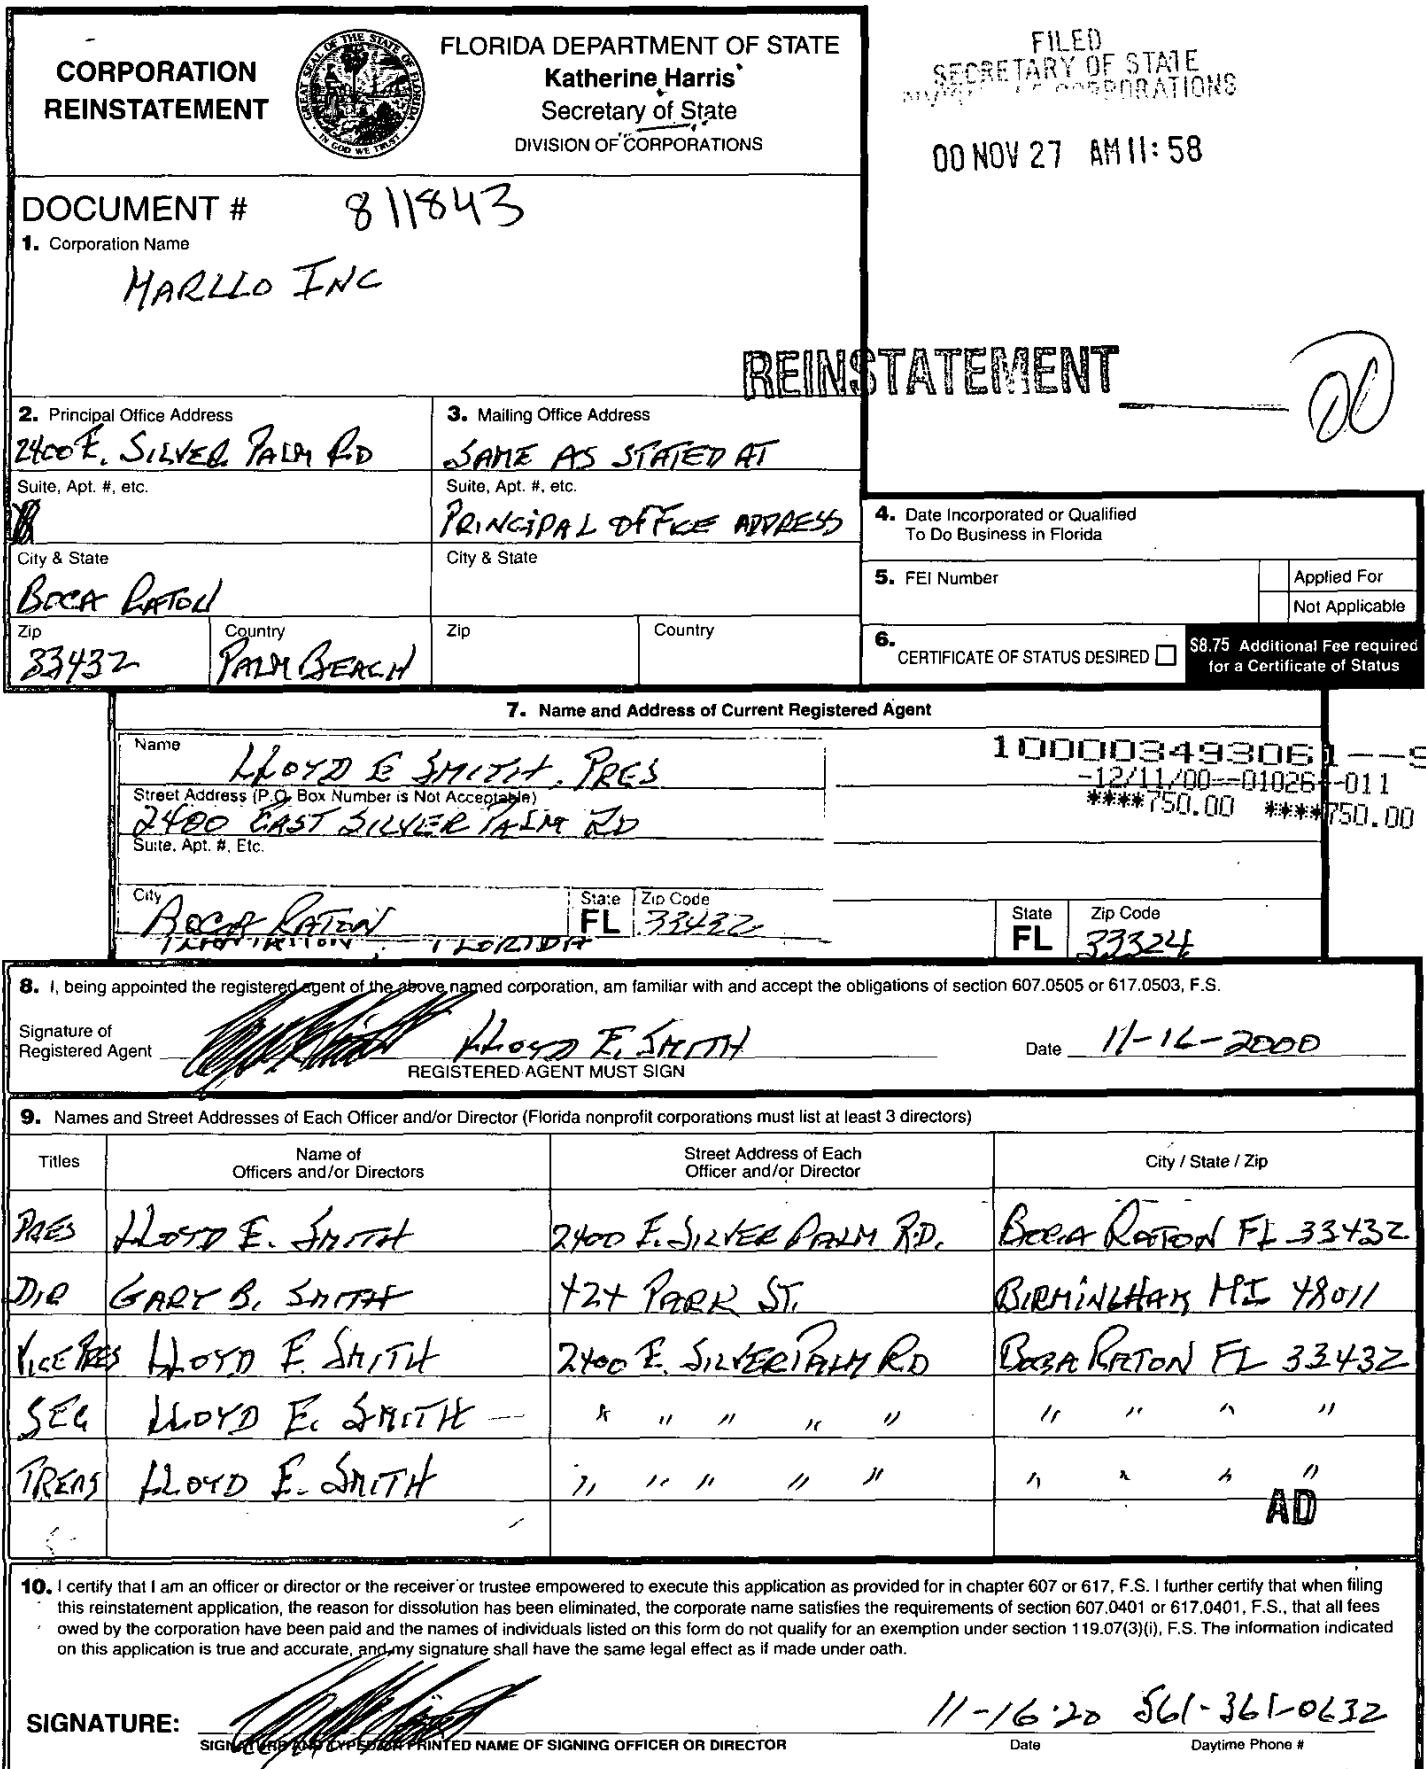 CORPORATION
REINSTATEMENT
GREAT SEAL OF THE STATE OF FLORIDA
IN GOD WE TRUST
FLORIDA DEPARTMENT OF STATE
Katherine Harris
Secretary of State
DIVISION OF CORPORATIONS
FILED
SECRETARY OF STATE
CORPORATIONS
00 NOV 27 AM 11:58
DOCUMENT # 811843
1. Corporation Name
HARLLO INC
REINSTATEMENT
00
2. Principal Office Address
2400 E. SILVER PALM RD
3. Mailing Office Address
SAME AS STATED AT
Suite, Apt. #, etc.
Suite, Apt. #, etc.
PRINCIPAL OFFICE ADDRESS
City & State
BOCA RATON
City & State
Zip
33432
Country
PALM BEACH
Zip
Country
4. Date Incorporated or Qualified
To Do Business in Florida
5. FEI Number
Applied For
Not Applicable
6. CERTIFICATE OF STATUS DESIRED
$8.75 Additional Fee required
for a Certificate of Status
7. Name and Address of Current Registered Agent
Name
LLOYD E SMITH, PRES
Street Address (P.O. Box Number is Not Acceptable)
2400 EAST SILVER PALM RD
Suite, Apt. #, Etc.
City
BOCA RATON
State
FL
Zip Code
33432
FLORIDA
100003493061--9
-12/11/00--01026--011
****750.00 ****750.00
State
FL
Zip Code
33324
8. I, being appointed the registered agent of the above named corporation, am familiar with and accept the obligations of section 607.0505 or 617.0503, F.S.
Signature of
Registered Agent
LLOYD E. SMITH
Date 11-16-2000
REGISTERED AGENT MUST SIGN
9. Names and Street Addresses of Each Officer and/or Director (Florida nonprofit corporations must list at least 3 directors)
Titles
Name of
Officers and/or Directors
Street Address of Each
Officer and/or Director
City / State / Zip
PRES LLOYD E. SMITH 2400 E. SILVER PALM RD. BOCA RATON FL 33432
DIR GARY B. SMITH 424 PARK ST. BIRMINGHAM MI 48011
VICE PRES LLOYD E. SMITH 2400 E. SILVER PALM RD BOCA RATON FL 33432
SEC LLOYD E. SMITH " " " " " " " " "
TREAS LLOYD E. SMITH " " " " " " " " "
AD
10. I certify that I am an officer or director or the receiver or trustee empowered to execute this application as provided for in chapter 607 or 617, F.S. I further certify that when filing
this reinstatement application, the reason for dissolution has been eliminated, the corporate name satisfies the requirements of section 607.0401 or 617.0401, F.S., that all fees
owed by the corporation have been paid and the names of individuals listed on this form do not qualify for an exemption under section 119.07(3)(i), F.S. The information indicated
on this application is true and accurate, and my signature shall have the same legal effect as if made under oath.
SIGNATURE:
11-16-20 561-361-0632
SIGNATURE AND TYPED OR PRINTED NAME OF SIGNING OFFICER OR DIRECTOR
Date
Daytime Phone #